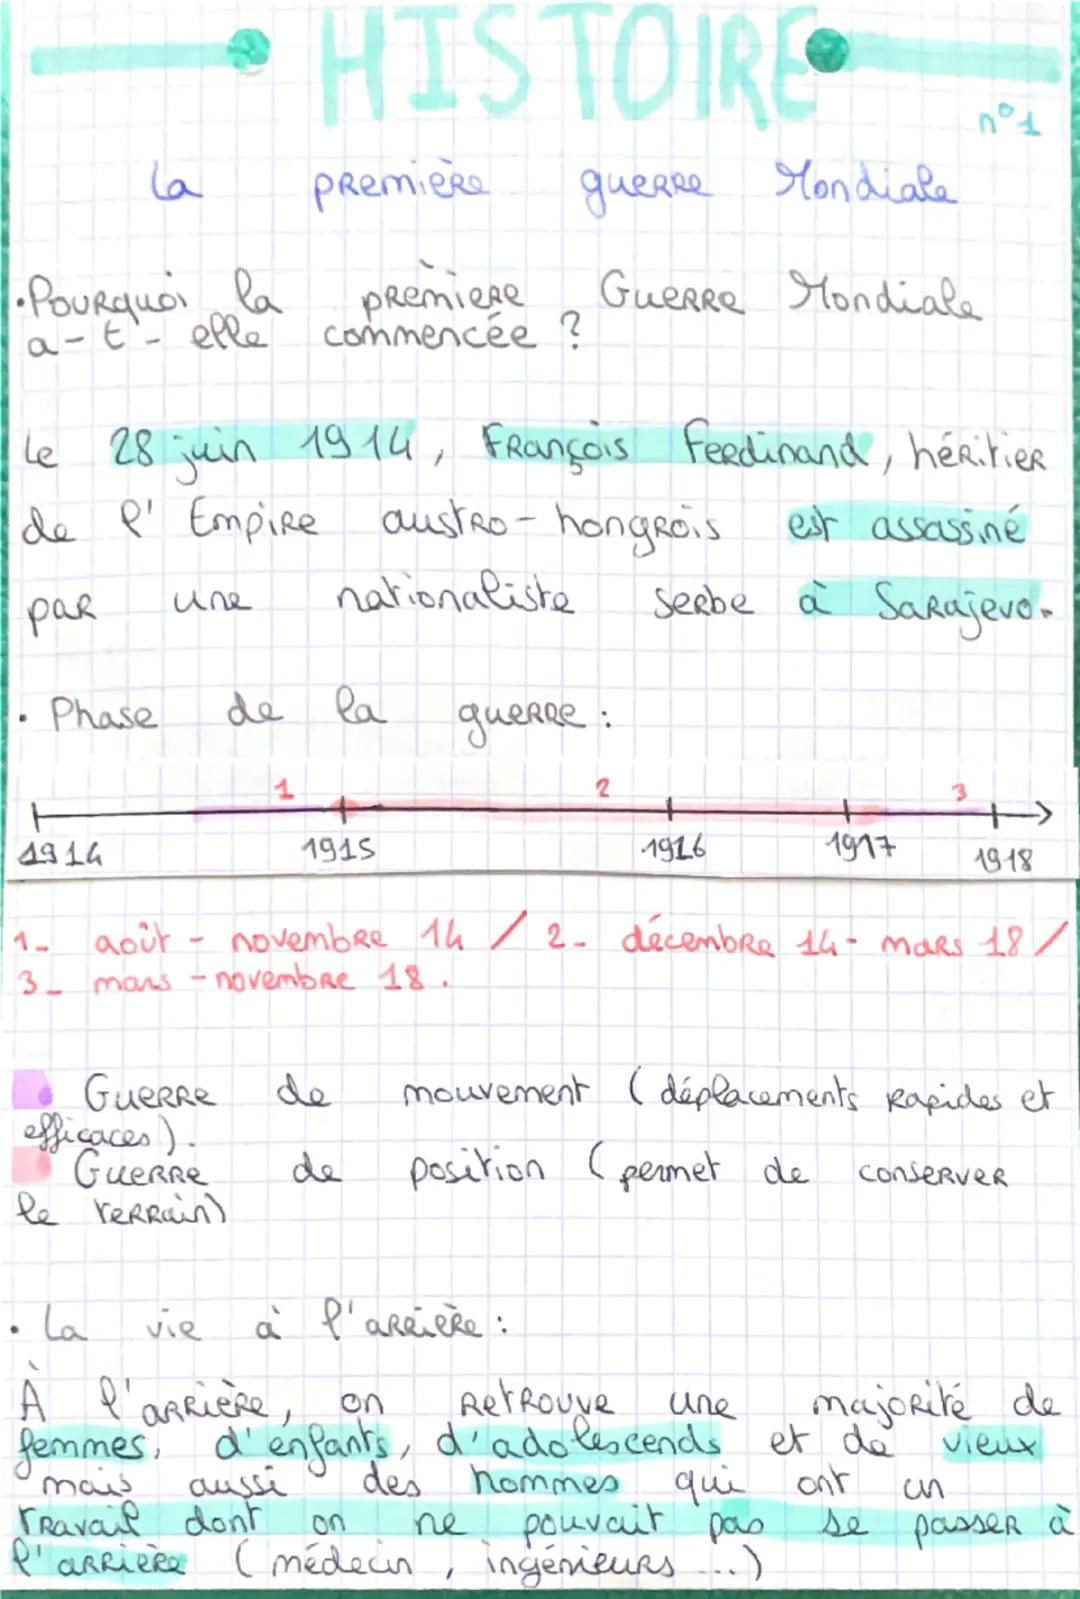 HISTOIRE
n°1
La première guerre Mondiale
•Pourquoi la première Guerre Mondiale
a-t-elle commencée ?
Le 28 juin 1914, François Ferdinand, héritier
de l'Empire austro-hongrois est assassiné
par une nationaliste serbe à Sarajevo.
• Phase de la guerre :
1 2 3
1914 1915 1916 1917 1918
1- août - novembre 14 / 2- décembre 14- mars 18 /
3- mars - novembre 18.
Guerre de mouvement (déplacements rapides et
efficaces).
Guerre de position (permet de conserver
le terrain)
• La vie à l'arrière :
À l'arrière, on retrouve une majorité de
femmes, d'enfants, d'adolescends et de vieux
mais aussi des hommes qui ont un
travail dont on ne pouvait pas se passer à
l'arrière (médecin, ingénieurs ...)